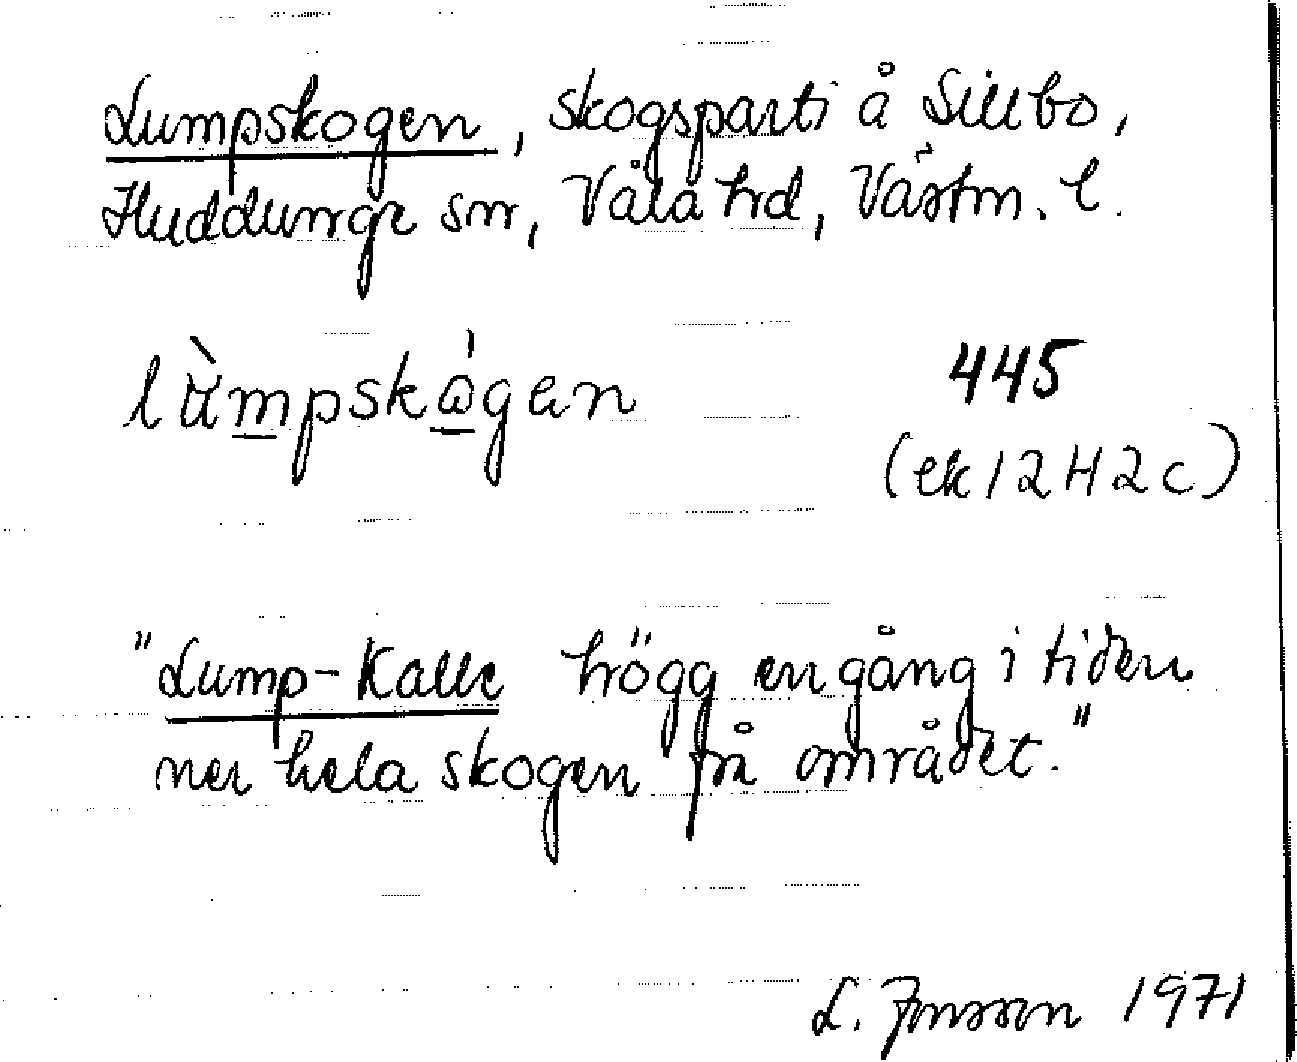 Lumpskogen, skogsparti å Sillbo,
Huddunge sn, Våla hd, Västm. l.
lùmpskågen
445
(ek 12H2c)
"Lump-Kalle högg en gång i tiden
ner hela skogen på området."
L. Jonsson 1971